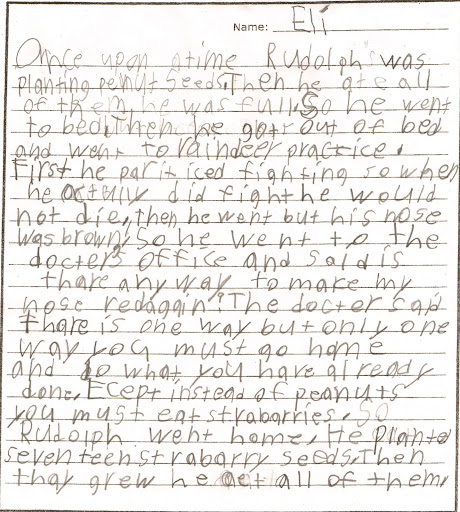 Name: Eli
Once upon a time Rudolph was
planting penut seeds. Then he ate all
of them, he was full. So he went
to bed. Then he got out of bed
and went to raindeer practice.
First he pariticed fighting so when
he actully did fight he would
not die, then he went but his nose
was brown, so he went to the
docters office and said is
thare any way to make my
nose redaggin? The docter said
thare is one way but only one
way you must go home
and do what you have already
done. Ecept instead of peanuts
you must eat strabarries. So
Rudolph went home. He planted
seventeen strabarry seeds. Then
thay grew he aet all of them.